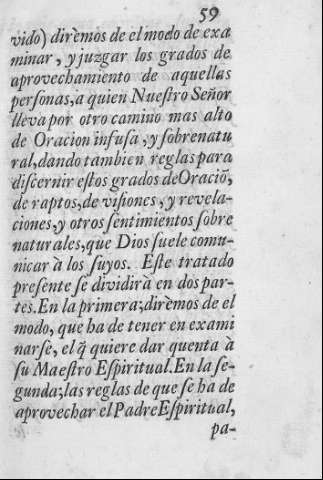 59
vido) dirèmos de el modo de exa
minar, y juzgar los grados de
aprovechamiento de aquellas
personas, a quien Nuestro Señor
lleva por otro camino mas alto
de Oracion infusa, y sobrenatu
ral, dando tambien reglas para
discernir estos grados de Oraciõ,
de raptos, de visiones, y revela-
ciones, y otros sentimientos sobre
naturales, que Dios suele comu-
nicar à los suyos. Este tratado
presente se dividirà en dos par-
tes. En la primera; dirèmos de el
modo, que ha de tener en exami
narse, el q̃ quiere dar quenta à
su Maestro Espiritual. En la se-
gunda; las reglas de que se ha de
aprovechar el Padre Espiritual,
pa-